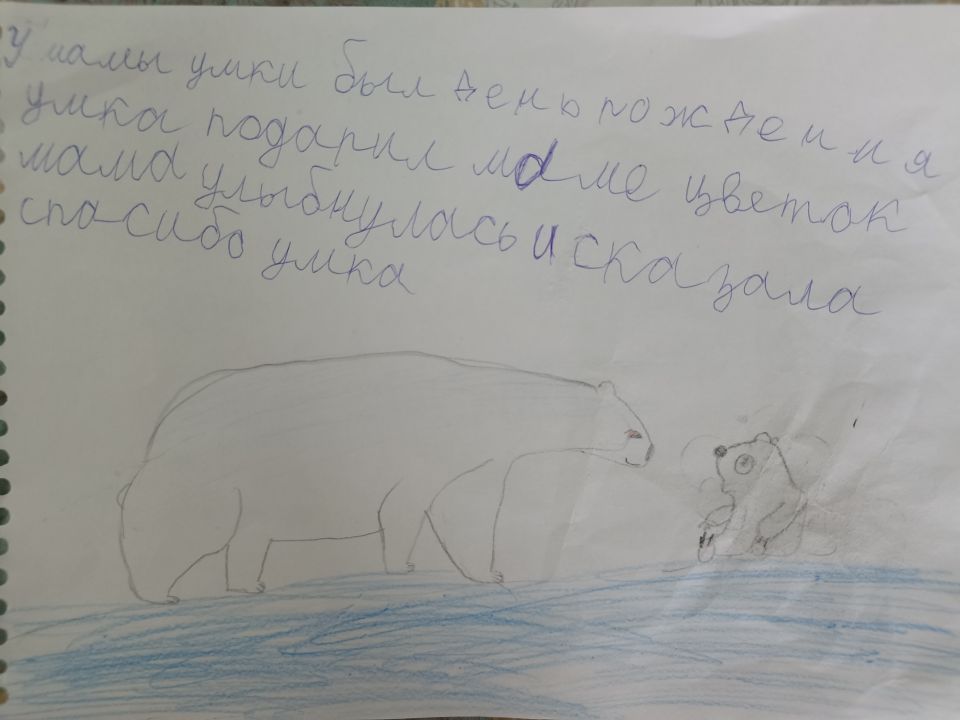 У мамы умки был день рождения
умка подарил маме цветок
мама улыбнулась и сказала
спасибо умка